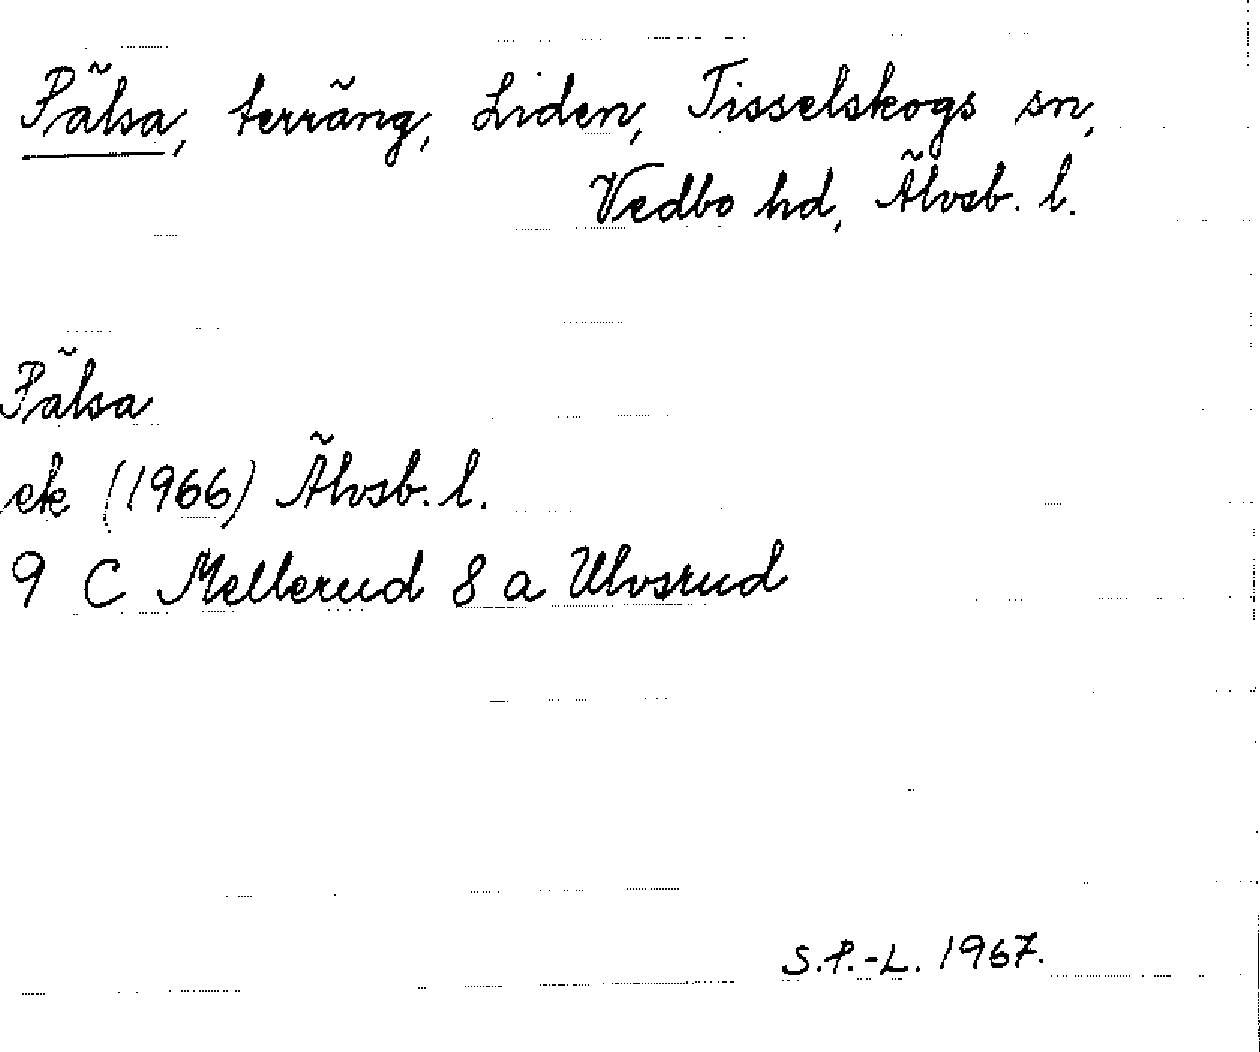 Pälsa, terräng, Liden, Tisselskogs sn,
Vedbo hd, Älvsb. l.
Pälsa
ek (1966) Älvsb. l.
9 C Mellerud 8 a Ulvsrud
S.P.-L. 1967.